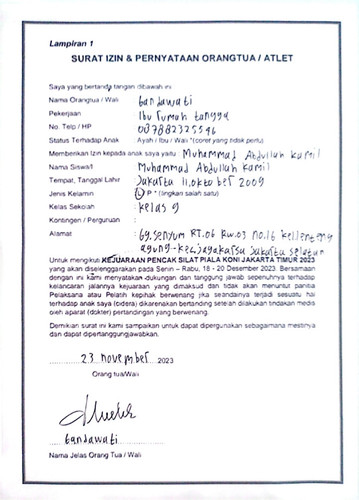 Lampiran 1
SURAT IZIN & PERNYATAAN ORANGTUA / ATLET
Saya yang bertanda tangan dibawah ini
Nama Orangtua / Wali : Gandawati
Pekerjaan : Ibu rumah tangga
No. Telp / HP : 087882325546
Status Terhadap Anak : Ayah / Ibu / Wali *(coret yang tidak perlu)
Memberikan Izin kepada anak saya yaitu : Muhammad Abdullah Kamil
Nama Siswa/I : Muhammad Abdullah Kamil
Tempat, Tanggal Lahir : Jakarta 11, oktober 2009
Jenis Kelamin : L P * (lingkari salah satu)
Kelas Sekolah : kelas 9
Kontingen / Perguruan :
Alamat : Gg. Senyum RT.06 RW.03 no.16
agung-kec, jagakarsa Jakarta Selatan
Untuk mengikuti KEJUARAAN PENCAK SILAT PIALA KONI JAKARTA TIMUR 2023
yang akan diselenggarakan pada Senin – Rabu, 18 - 20 Desember 2023. Bersamaan
dengan ini kami menyatakan dukungan dan tanggung jawab sepenuhnya terhadap
kelancaran jalannya kejuaraan yang dimaksud dan tidak akan menuntut panitia
Pelaksana atau Pelatih kepihak berwenang jika seandainya terjadi sesuatu hal
terhadap anak saya (cidera) dikarenakan bertanding setelah dilakukan tindakan medis
oleh aparat (dokter) pertandingan yang berwenang.
Demikian surat ini kami sampaikan untuk dapat dipergunakan sebagaimana mestinya
dan dapat dipertanggungjawabkan.
23 november 2023
Orang tua/Wali
Gandawati
Nama Jelas Orang Tua / Wali